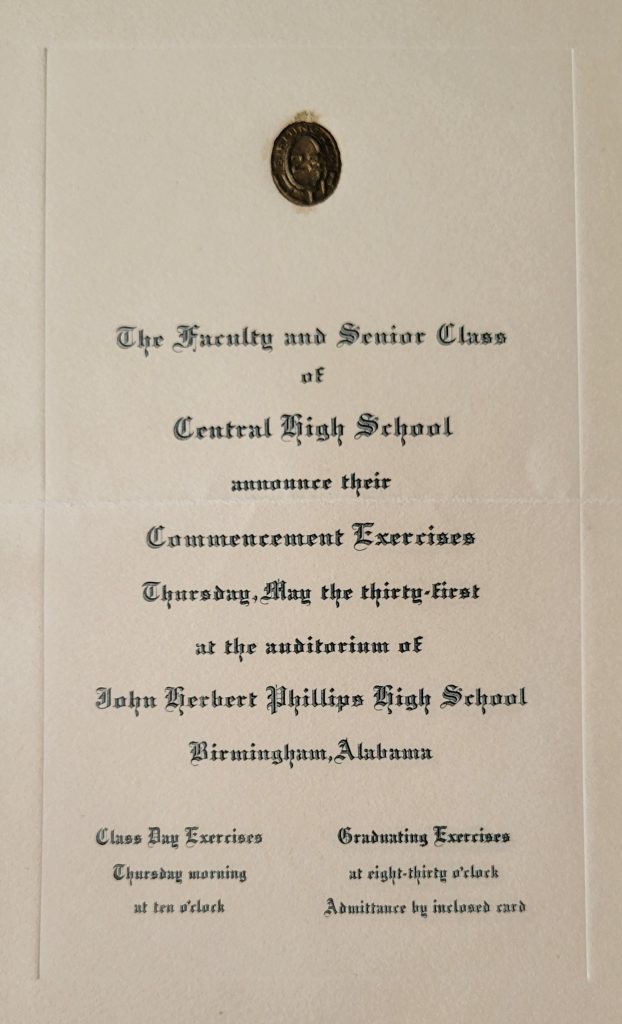 The Faculty and Senior Class
of
Central High School
announce their
Commencement Exercises
Thursday, May the thirty-first
at the auditorium of
John Herbert Phillips High School
Birmingham, Alabama
Class Day Exercises
Thursday morning
at ten o'clock
Graduating Exercises
at eight-thirty o'clock
Admittance by inclosed card